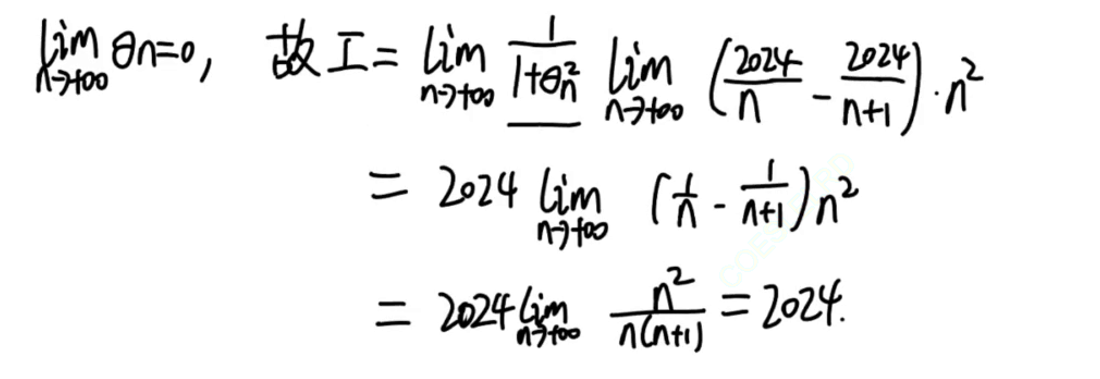 lim_{n→+∞} θn=0, 故 I = lim_{n→+∞} \frac{1}{1+θ_n^2} lim_{n→+∞} (\frac{2024}{n} - \frac{2024}{n+1})·n^2
= 2024 lim_{n→+∞} (\frac{1}{n} - \frac{1}{n+1})n^2
= 2024 lim_{n→+∞} \frac{n^2}{n(n+1)} = 2024.